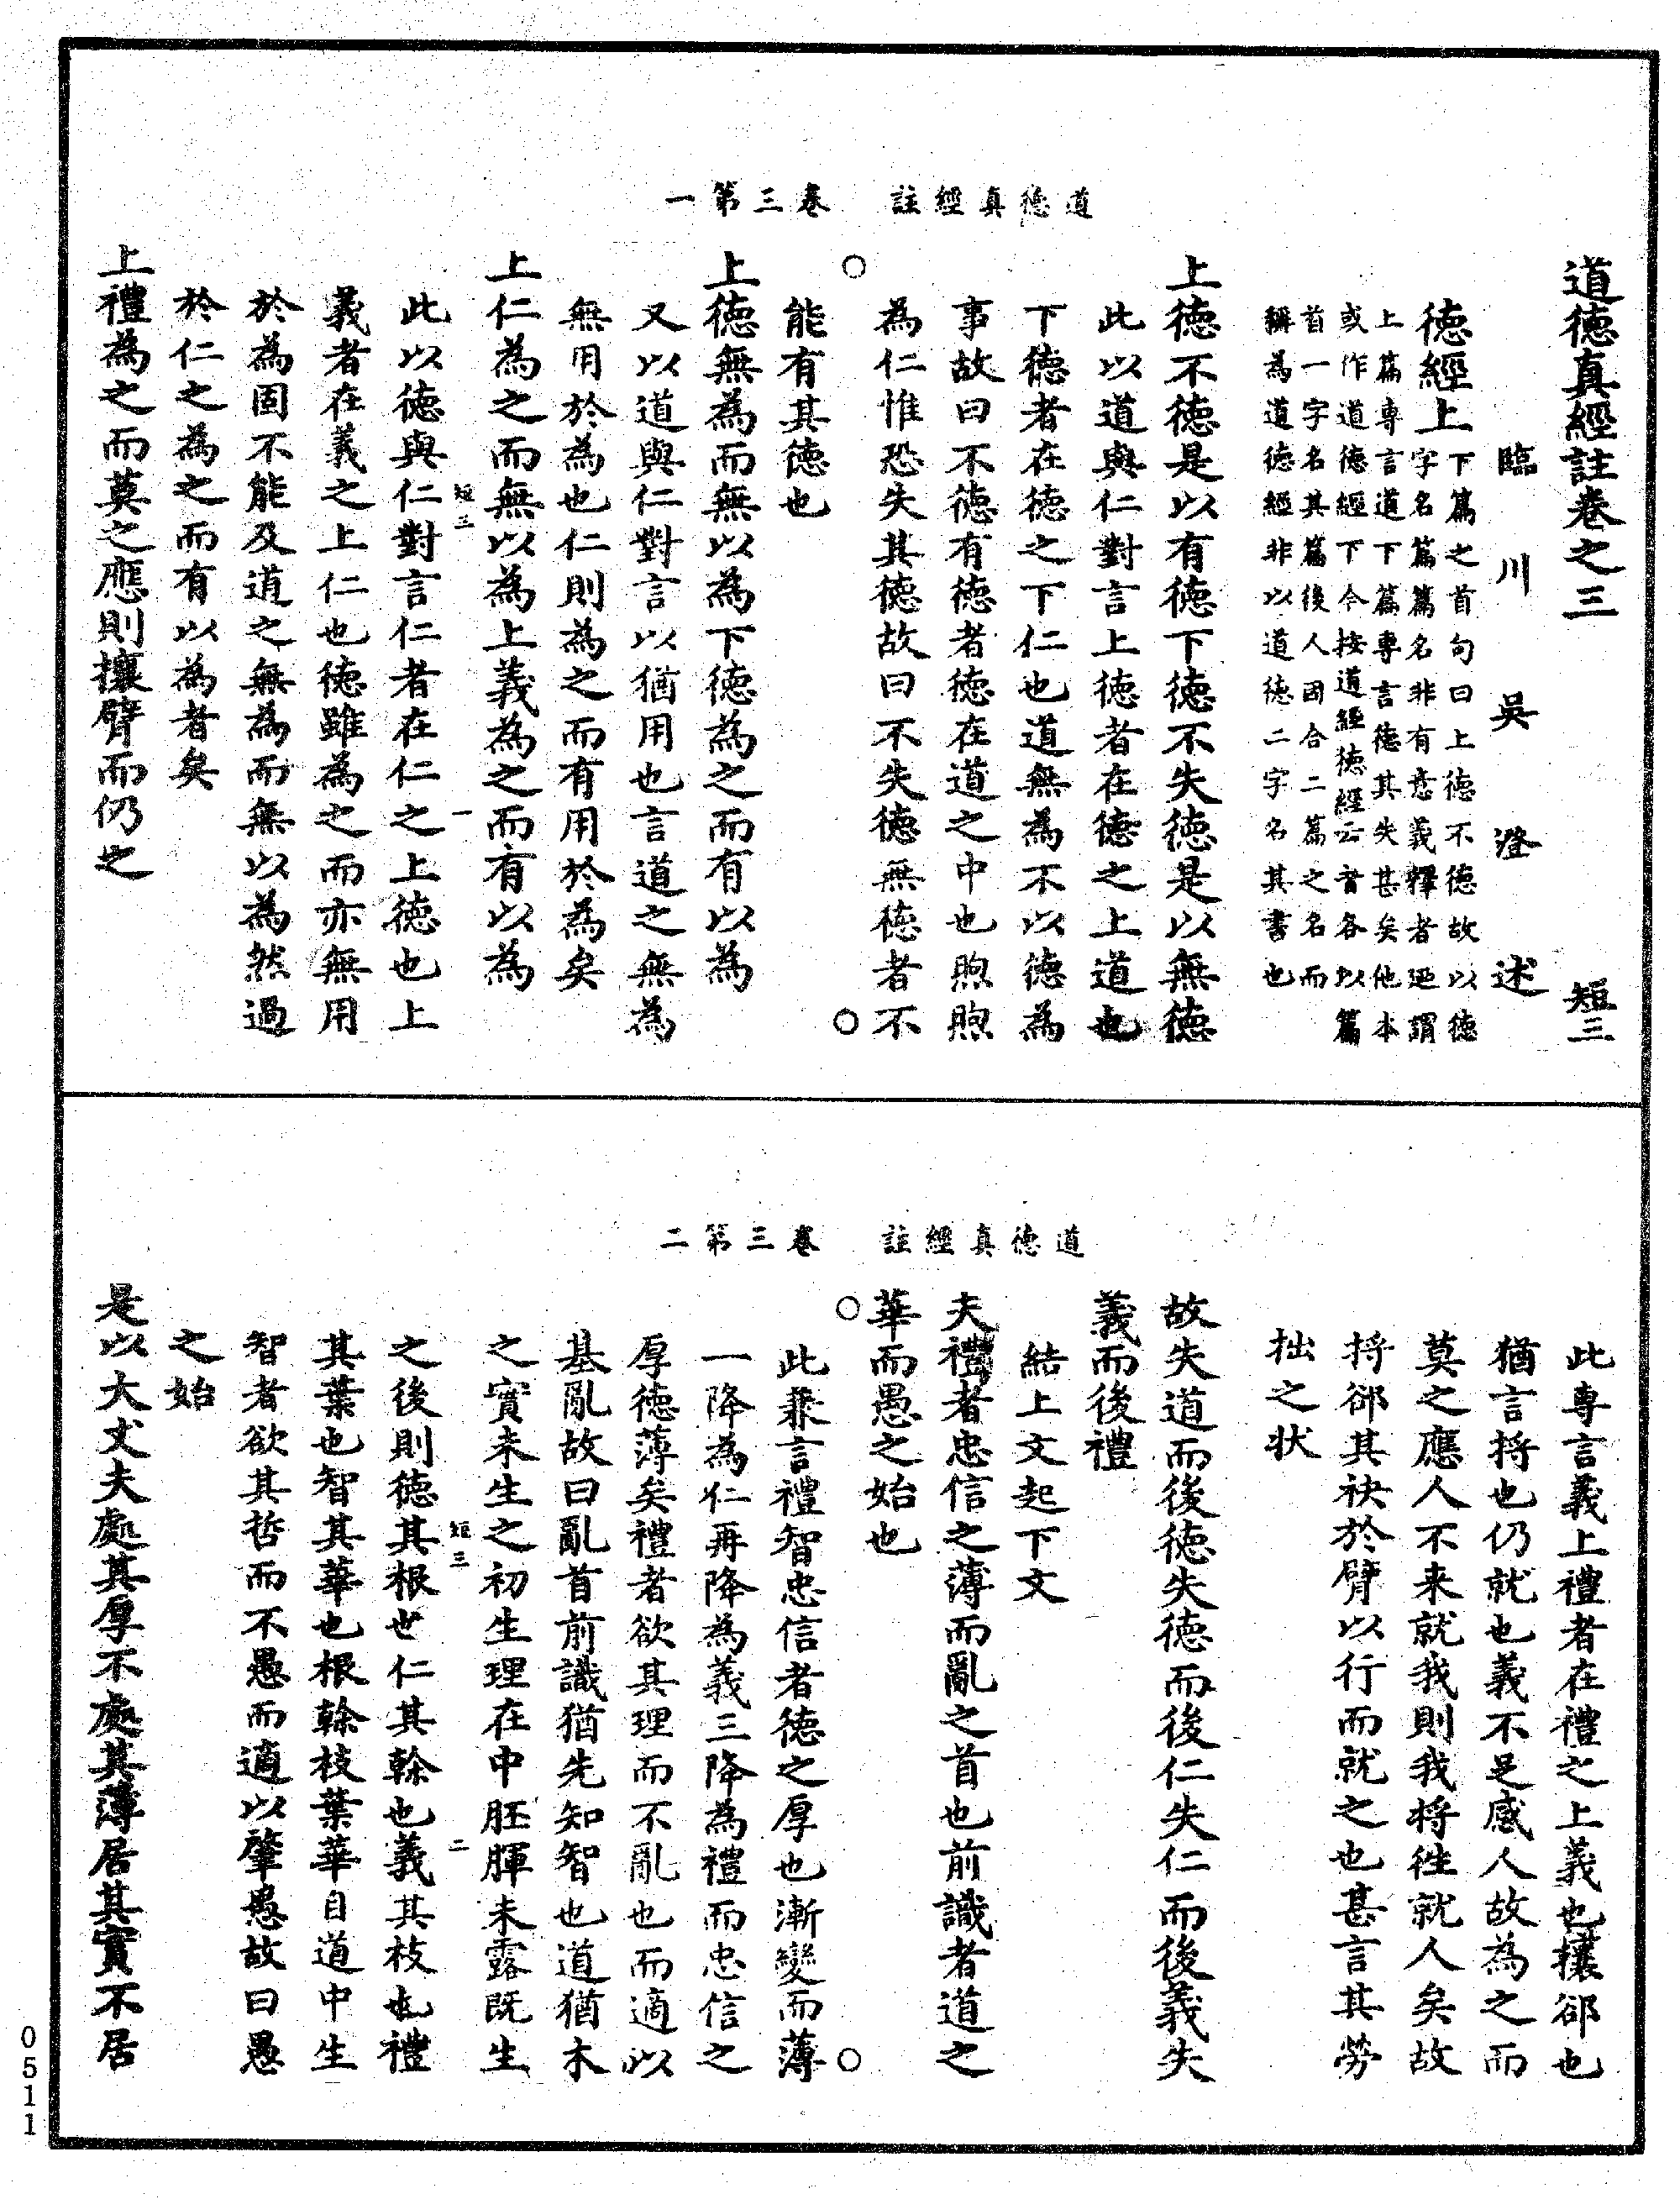 道德真經註卷三第一
道德真經註卷之三 短三
臨川吳澄述
德經上
下篇之首句曰上德不德故以德
字名篇篇名非有意義釋者迺謂
上篇專言道下篇專言德其失甚矣他本
或作道德經下今按道經德經云者各以篇
首一字名其篇後人因合二篇之名而
稱為道德經非以道德二字名其書也
上德不德是以有德下德不失德是以無德
此以道與仁對言上德者在德之上道也
下德者在德之下仁也道無為不以德為
事故曰不德有德者德在道之中也煦煦
為仁惟恐失其德故曰不失德無德者不
能有其德也
上德無為而無以為下德為之而有以為
又以道與仁對言以猶用也言道之無為
無用於為也仁則為之而有用於為矣
上仁為之而無以為上義為之而有以為
短三 一
此以德與仁對言仁者在仁之上德也上
義者在義之上仁也德雖為之而亦無用
於為固不能及道之無為而無以為然過
於仁之為之而有以為者矣
上禮為之而莫之應則攘臂而仍之
道德真經註卷三第二
此專言義上禮者在禮之上義也攘郤也
猶言將也仍就也義不足感人故為之而
莫之應人不来就我則我將徃就人矣故
將郤其袂於臂以行而就之也甚言其勞
拙之狀
故失道而後德失德而後仁失仁而後義失
義而後禮
結上文起下文
夫禮者忠信之薄而亂之首也前識者道之
華而愚之始也
此兼言禮智忠信者德之厚也漸變而薄
一降為仁再降為義三降為禮而忠信之
厚德薄矣禮者欲其理而不亂也而適以
基亂故曰亂首前識猶先知智也道猶木
之實未生之初生理在中胚腪未露既生
短三 二
之後則德其根也仁其榦也義其枝也禮
其葉也智其華也根榦枝葉華自道中生
智者欲其哲而不愚而適以肇愚故曰愚
之始
是以大丈夫處其厚不處其薄居其實不居
0511